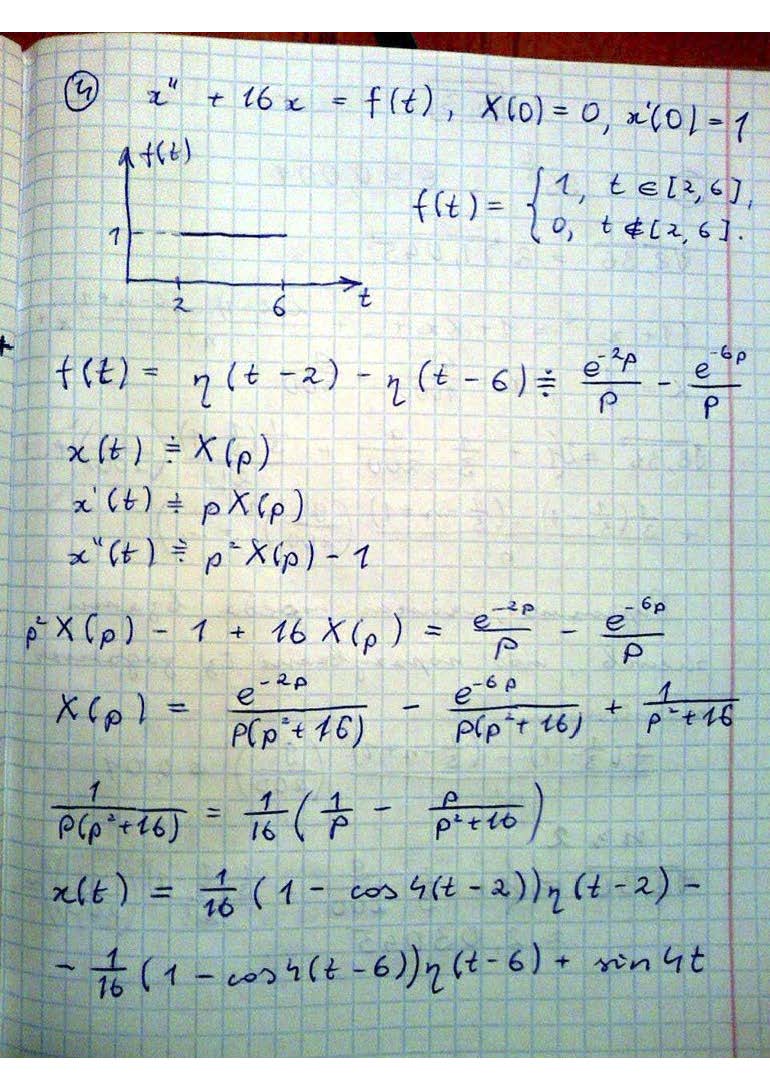 ④ x'' + 16x = f(t), X(0) = 0, x'(0) = 1
f(t)
1
2 6 t
f(t) = { 1, t ∈ [2,6],
0, t ∉ [2,6].
f(t) = η(t-2) - η(t-6) ≑ e^{-2p}/p - e^{-6p}/p
x(t) ≑ X(p)
x'(t) ≑ pX(p)
x''(t) ≑ p²X(p) - 1
p²X(p) - 1 + 16X(p) = e^{-2p}/p - e^{-6p}/p
X(p) = e^{-2p}/(p(p²+16)) - e^{-6p}/(p(p²+16)) + 1/(p²+16)
1/(p(p²+16)) = 1/16 (1/p - p/(p²+16))
x(t) = 1/16 (1 - cos4(t-2))η(t-2) -
- 1/16 (1 - cos4(t-6))η(t-6) + sin4t